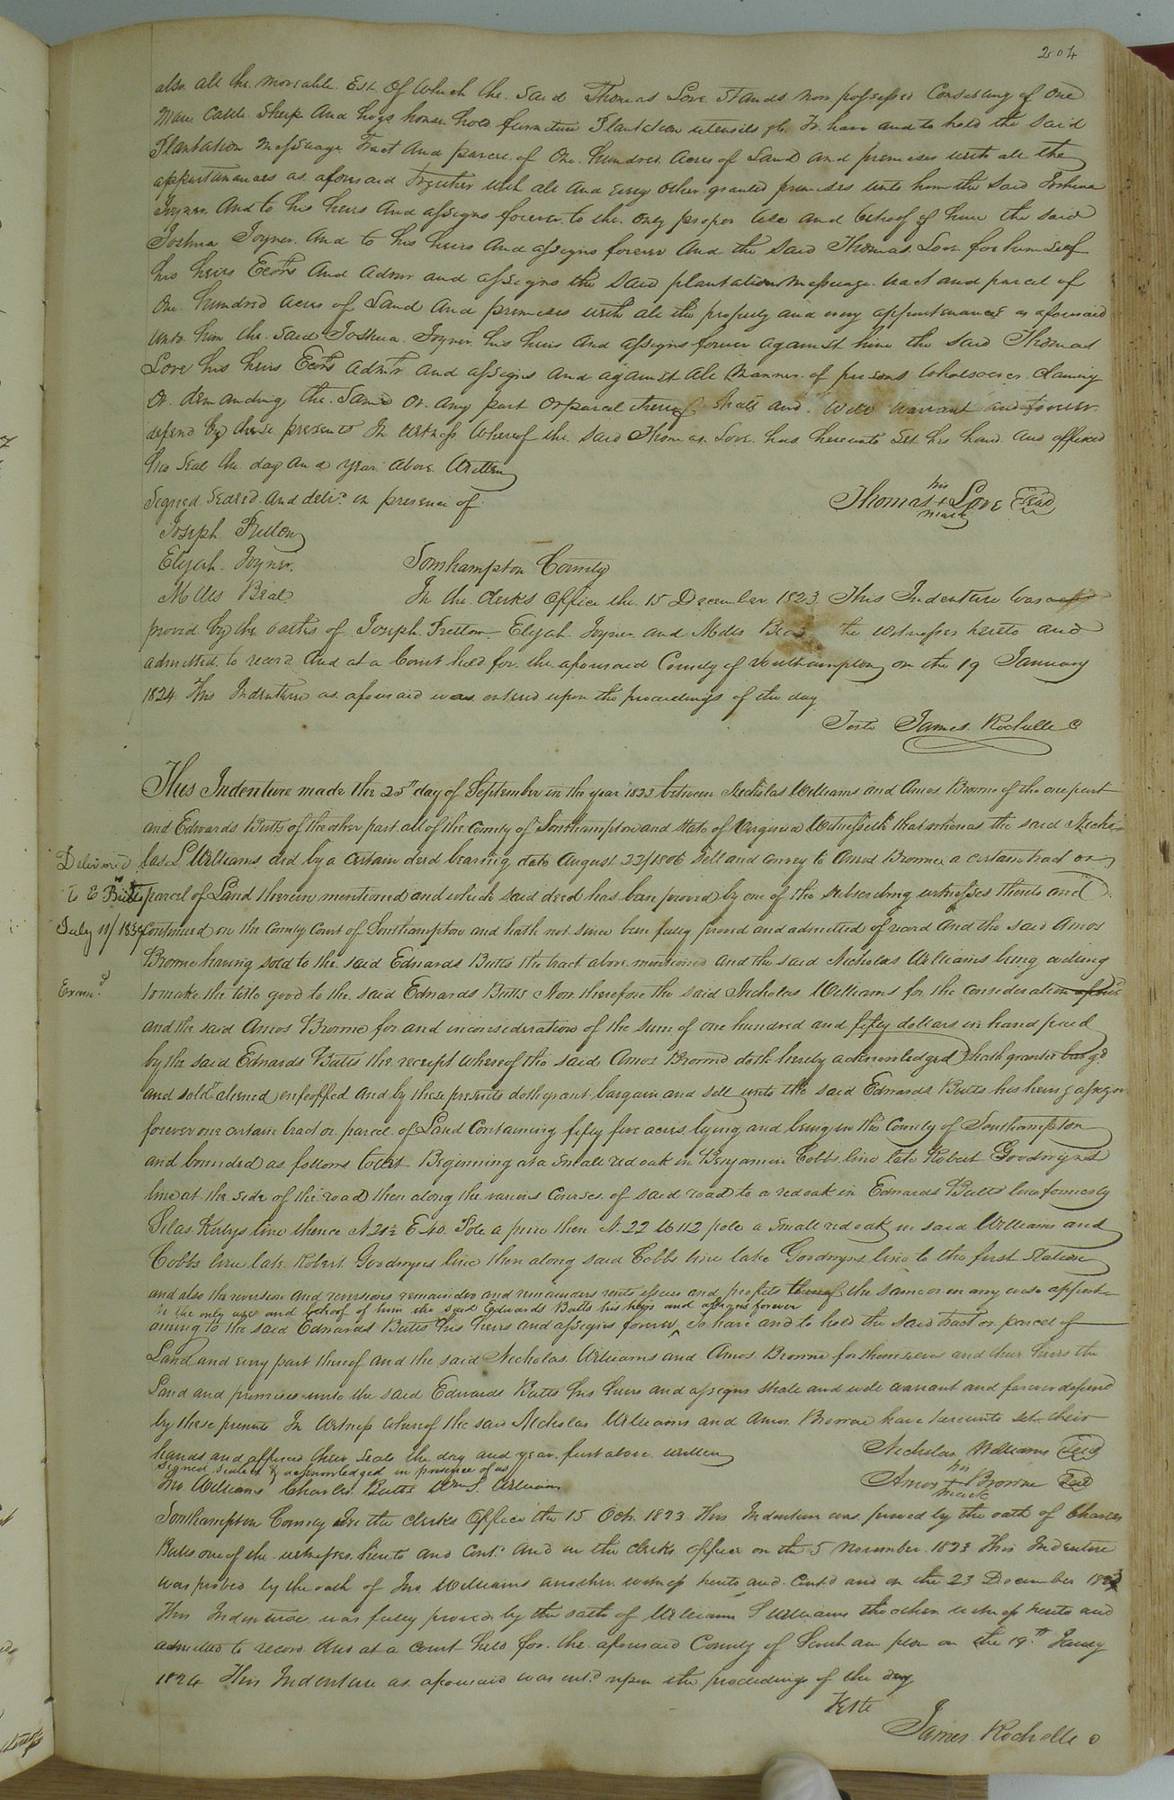 204
also all the moveable Est. of which the said Thomas Love stands now possessed Consisting of One
Mare Cattle Sheep And hogs house hold furniture Plantation utensils &c To have and to hold the said
Plantation Messuage Tract And parcel of One hundred Acres of Land and premises with all the
appurtenances as aforesaid Together with all And every other granted premises unto him the said Joshua
Joyner And to his heirs And assigns forever to the only proper use and behoof of him the said
Joshua Joyner And to his heirs And assigns forever And the said Thomas Love for himself
his heirs Ecors And Admrs and assigns the said plantation Messuage tract and parcel of
One hundred acres of Land And premises with all the property and every appurtenances as aforesaid
unto him the said Joshua Joyner his heirs And assigns forever against him the said Thomas
Love his heirs Ecors Admrs and assigns and against all Manner of persons whatsoever claiming
Or demanding the Same Or any part Or parcel thereof shall and will warrant and forever
defend by these presents In witness whereof the said Thomas Love has hereunto Set his hand and affixed
his Seal the day and year above Written
Signed Sealed and delivd in presence of
his
Thomas + Love Seal
mark
Joseph Pretlow
Elijah Joyner
Miles Beal
Southampton County
In the Clerks Office the 15 December 1823 This Indenture was
proved by the oaths of Joseph Pretlow Elijah Joyner and Miles Beal the witnesses hereto and
admitted to record And at a Court held for the aforesaid County of Southampton on the 19 January
1824 This Indenture as aforesaid was entered upon the proceedings of the day
Teste James Rochelle C
This Indenture made the 25th day of September in the year 1823 between Nicholas Williams and Amos Browne of the one part
and Edwards Butts of the other part all of the County of Southampton and State of Virginia Witnesseth that whereas the said Nicho-
Delivered
las L Williams did by a certain deed bearing date August 22/1806 Sell and convey to Amos Browne a certain tract or
to E Butts
parcel of Land therein mentioned and which said deed has been proved by one of the subscribing witnesses thereto and
July 11/1834
Continued in the County Court of Southampton and hath not since been fully proved and admitted of record And the said Amos
Browne having sold to the said Edwards Butts the tract above mentioned and the said Nicholas Williams being willing
Examd
to make the title good to the said Edwards Butts Now therefore the said Nicholas Williams for the consideration
and the said Amos Browne for and in consideration of the sum of one hundred and fifty dollars in hand paid
by the said Edwards Butts the receipt whereof the said Amos Browne doth hereby acknowledged hath granted bargd
and sold aliened enfeoffed and by these presents doth grant bargain and sell unto the said Edwards Butts his heirs & assigns
forever one certain tract or parcel of Land Containing fifty five acres lying and being in the County of Southampton
and bounded as follows towit Beginning at a Small red oak in Benjamin Cobbs line late Robert Goodwyns
line at the side of the road then along the various Courses of said road to a red oak in Edwards Butts line formerly
Silas Kirbys line thence N 21½ E 40 Pole a pine then N. 22 W 112 pole a small red oak in said Williams and
Cobbs line late Robert Goodwyns line then along said Cobbs line late Goodwyns line to the first Station
and also the reversion and reversions remainder and remainders rents issues and profits thereof the same or in any wise appert-
to the only use and behoof of him the said Edwards Butts his heirs and assigns forever
aining to the said Edwards Butts his heirs and assigns forever ^ To have and to hold the said tract or parcel of
Land and every part thereof and the said Nicholas Williams and Amos Browne for themselves and their heirs the
Land and premises unto the said Edwards Butts his heirs and assigns shall and will warrant and forever defend
by these presents In Witness whereof the said Nicholas Williams and Amos Browne have hereunto set their
hands and affixed their Seals the day and year first above written
Nicholas Williams Seal
Signed sealed & acknowledged in presence of us
his
Amos + Browne Seal
mark
Jno Williams Charles Butts Wm S. Williams
Southampton County In the Clerks Office the 15 Octr 1823 This Indenture was proved by the oath of Charles
Butts one of the witnesses hereto and Contd And in the clerks office on the 5 November 1823 This Indenture
was proved by the oath of Jno Williams another witness hereto and Contd and on the 23 December 1823
This Indenture was fully proved by the oath of William S Williams the other witness hereto and
admitted to record And at a Court held for the aforesaid County of Southampton on the 19th Jany
1824 This Indenture as aforesaid was entd upon the proceedings of the day
Teste
James Rochelle C